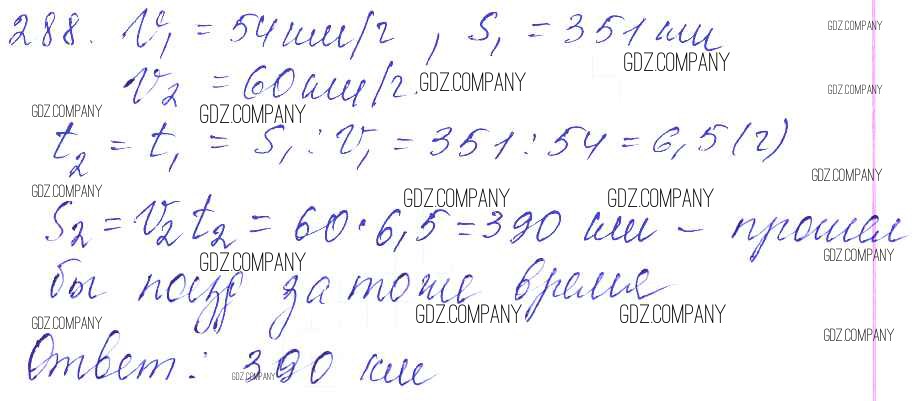 288. V₁ = 54 км/г, S₁ = 351 км
GDZ.COMPANY
GDZ.COMPANY
V₂ = 60 км/г.
GDZ.COMPANY
GDZ.COMPANY
GDZ.COMPANY
GDZ.COMPANY
t₂ = t₁ = S₁ : V₁ = 351 : 54 = 6,5 (г)
GDZ.COMPANY
GDZ.COMPANY
GDZ.COMPANY
GDZ.COMPANY
S₂ = V₂ t₂ = 60 · 6,5 = 390 км – прошел
GDZ.COMPANY
GDZ.COMPANY
бы поезд за тоже время
GDZ.COMPANY
GDZ.COMPANY
GDZ.COMPANY
GDZ.COMPANY
Ответ: 390 км
GDZ.COMPANY